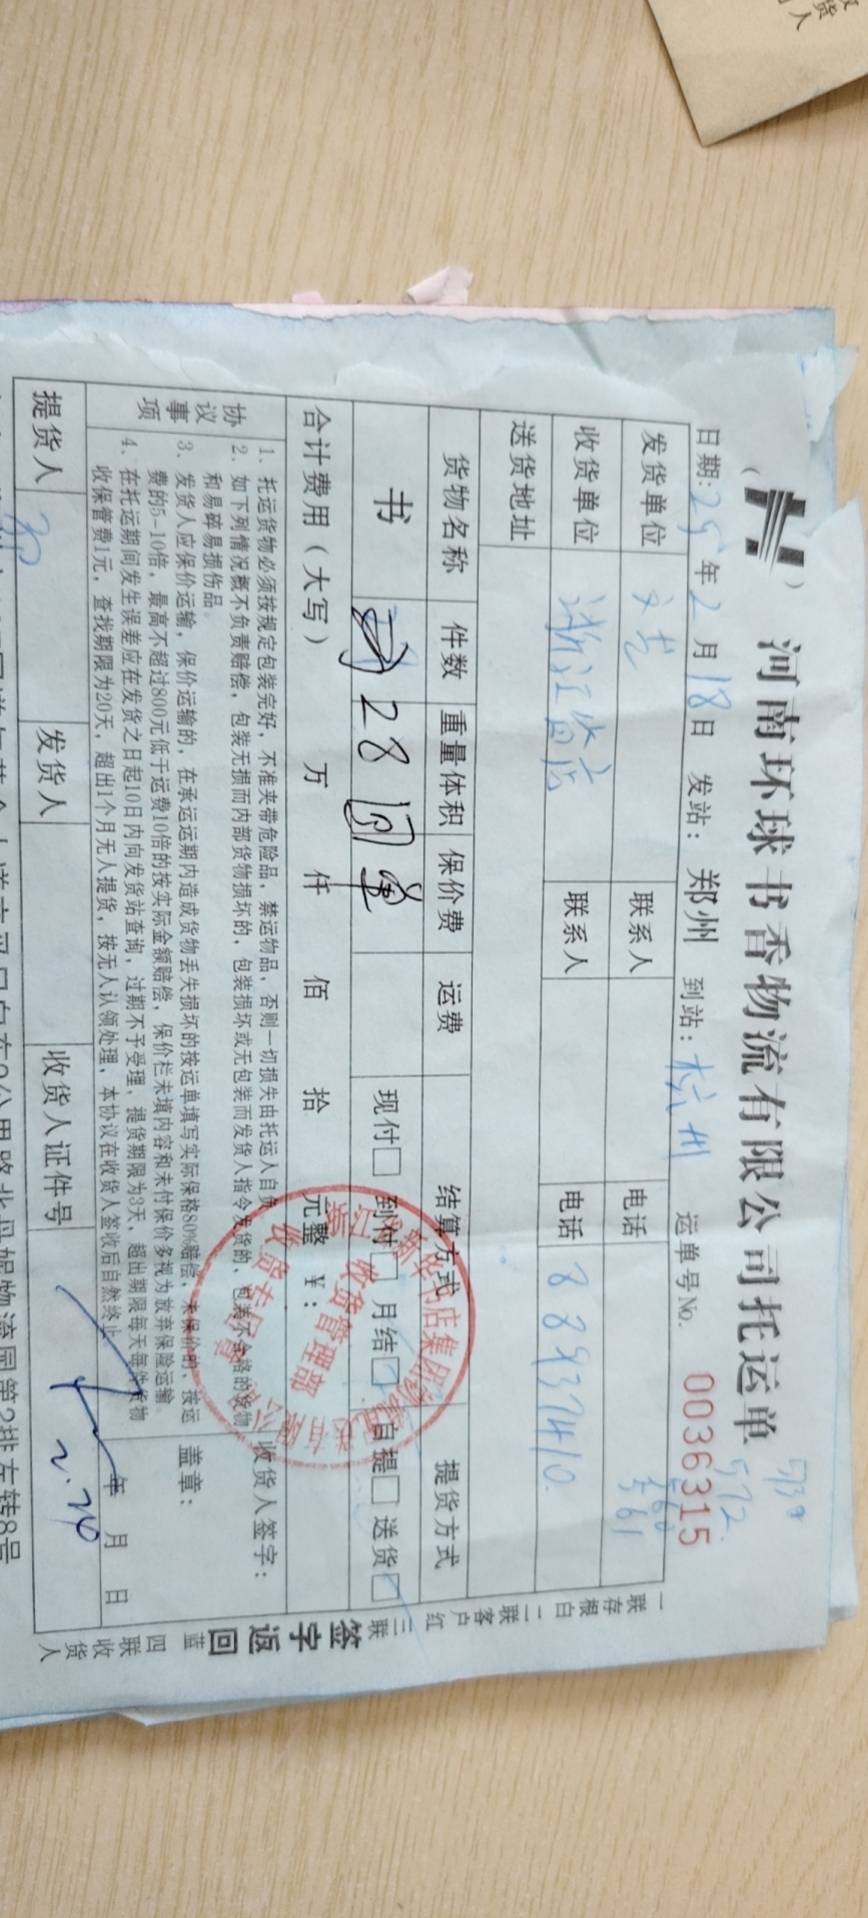 河南环球书香物流有限公司托运单
日期:25年2月18日 发站:郑州 到站:杭州 运单号No. 0036315
572
发货单位 文艺 联系人 电话
560
561
收货单位 浙江省店 联系人 电话 88937410
送货地址
货物名称 件数 重量体积 保价费 运费 结算方式 提货方式
书 28 回单 现付□ 到付□ 月结□ 自提□ 送货□
合计费用(大写) 万 仟 佰 拾 元整 ¥:
协议事项
1、托运货物必须按规定包装完好,不准夹带危险品,禁运物品,否则一切损失由托运人自负
2、如下列情况概不负责赔偿,包装无损而内部货物损坏的,包装损坏或无包装而发货人指令发货的,包装不合格的货物
和易碎易损伤品
3、发货人应保价运输,保价运输的,在承运运期内造成货物丢失损坏的按运单填写实际保格80%赔偿,未保价的,按运
费的5-10倍,最高不超过800元低于运费10倍的按实际金额赔偿,保价栏未填内容和未付保价多视为放弃保险运输
4、在托运期间发生误差应在发货之日起10日内向发货站查询,过期不予受理,提货期限为3天,超出期限每天每件货物
收保管费1元,查找期限为20天,超出1个月无人提货,按无人认领处理,本协议在收货人签收后自然终止
收货人签字:
盖章:
年 月 日
提货人 发货人 收货人证件号
2.20
一联存根白 二联客户红 三联签字返回蓝 四联收货人
新华书店集团
收货管理部
收货专用章
公里路北母娘物流园第2排左转8号